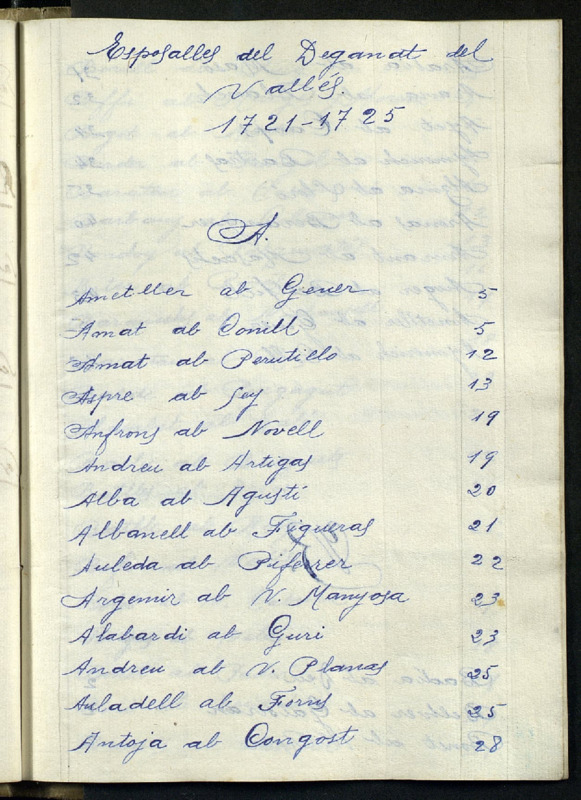 Esposalles del Deganat del
Vallés.
1721-1725
A.
Ametller ab Gener 5
Amat ab Conill 5
Amat ab Perutielo 12
Aspre ab Sey 13
Anfrons ab Novell 19
Andreu ab Artigas 19
Alba ab Agustí 20
Albanell ab Figueras 21
Auleda ab Piferrer 22
Argemir ab V. Manyosa 23
Alabardi ab Guri 23
Andreu ab V. Planas 25
Auladell ab Forns 25
Antoja ab Congost 28